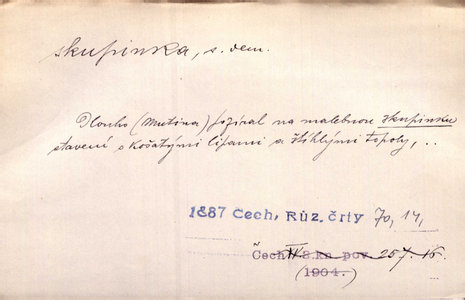 skupinka, s. dem.
Dlouho (Mutina) pozíral na malebnou skupinku
stavení s košatými lipami a štíhlými topoly, ..
1887 Čech, Růz. črty 70, 14,
Čech IV S.kn. pov. 257. 16
(1904.)